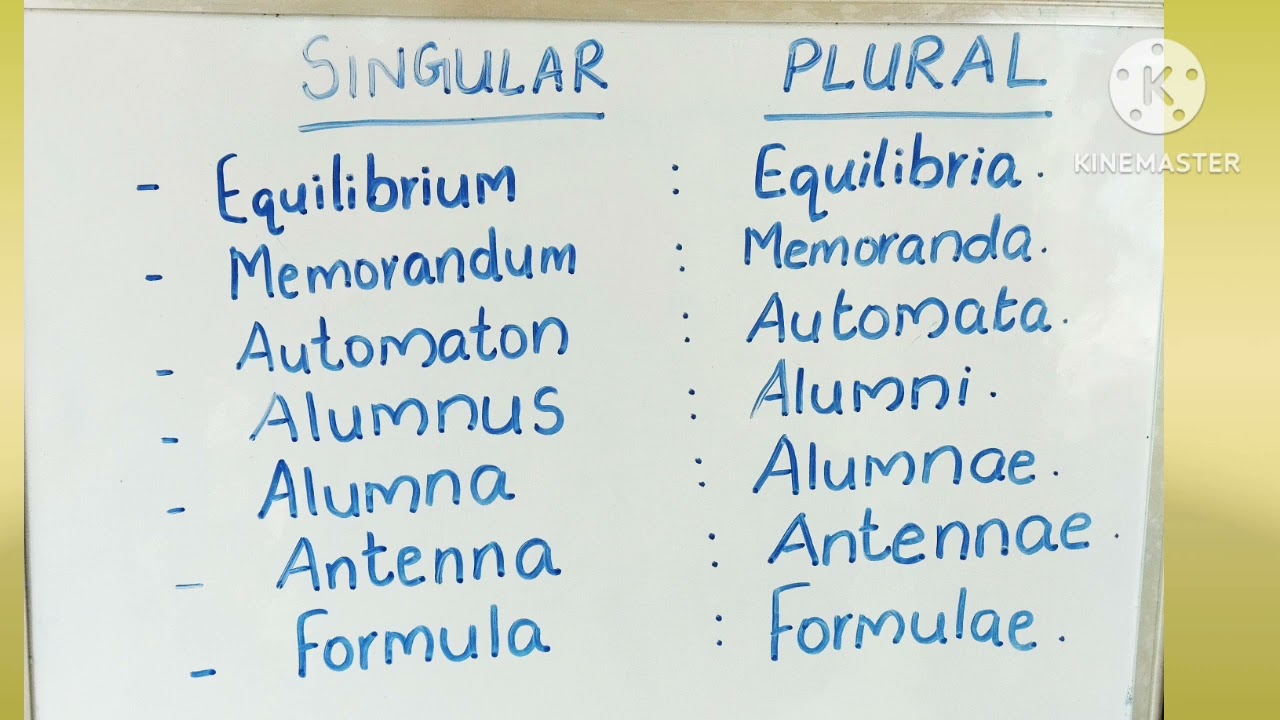 SINGULAR PLURAL
K
KINEMASTER
- Equilibrium : Equilibria.
- Memorandum : Memoranda.
- Automaton : Automata.
- Alumnus : Alumni.
- Alumna : Alumnae.
- Antenna : Antennae.
- Formula : Formulae.